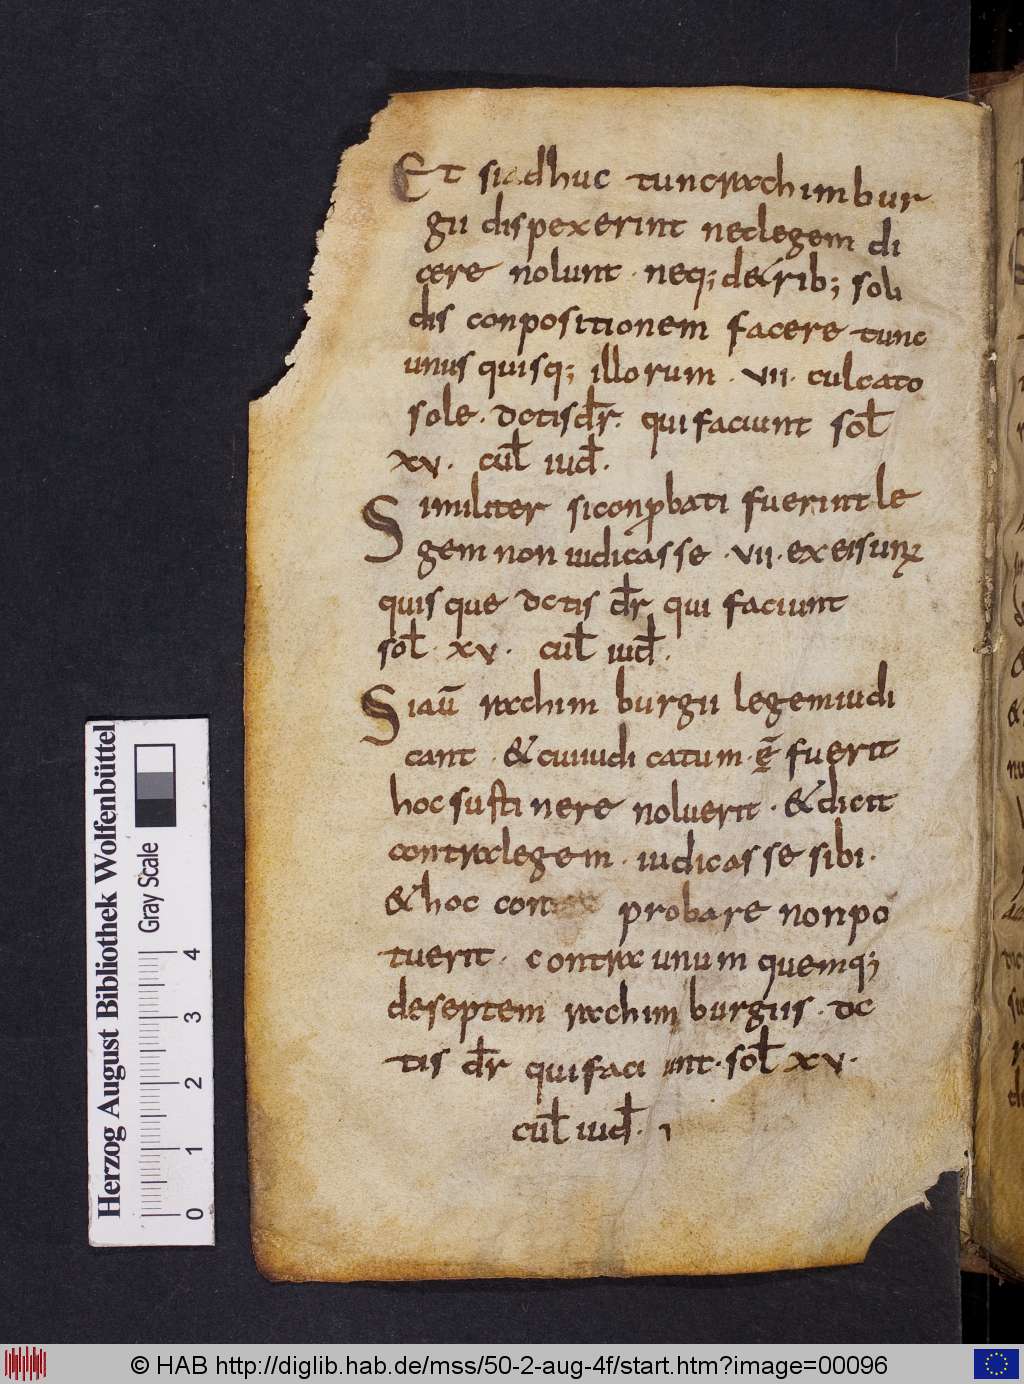 Et siadhuc tuncrachimbur
gii dispexerint neclegem di
cere nolunt · neq; de trib; soli
dis conpositionem facere tunc
unus quisq; illorum · vii · culcato
sole · dctisdr̄ · qui faciunt sol̄
xv · cul̄ iud̄ ·
Similiter siconꝓbati fuerint le
gem non iudicasse · vii · exeisunꝰ
quisque dctis dr̄ qui faciunt
sol̄ · xv · cul̄ iud̄ ·
Siau̅ rachim burgii legemiudi
cant · & cuiiudi catum · ē fuerit
hoc sustinere noluerit · & dicit
contralegem · iudicasse sibi ·
& hoc con probare nonpo
tuerit · contra unum quemq;
deseptem rachim burgiis · dc
tis dr̄ qui faci unt · sol̄ xv ·
cul̄ iud̄ ·
Herzog August Bibliothek Wolfenbüttel
Gray Scale
0 1 2 3 4
© HAB http://diglib.hab.de/mss/50-2-aug-4f/start.htm?image=00096